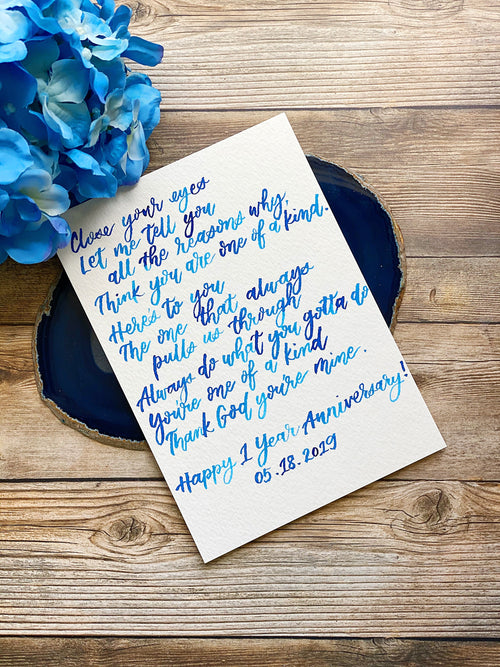 Close your eyes
Let me tell you
all the reasons why,
Think you are one of a kind.
Here's to you
The one that always
pulls us through
Always do what you gotta do
You're one of a kind
Thank God you're mine.
Happy 1 Year Anniversary!
05.18.2019